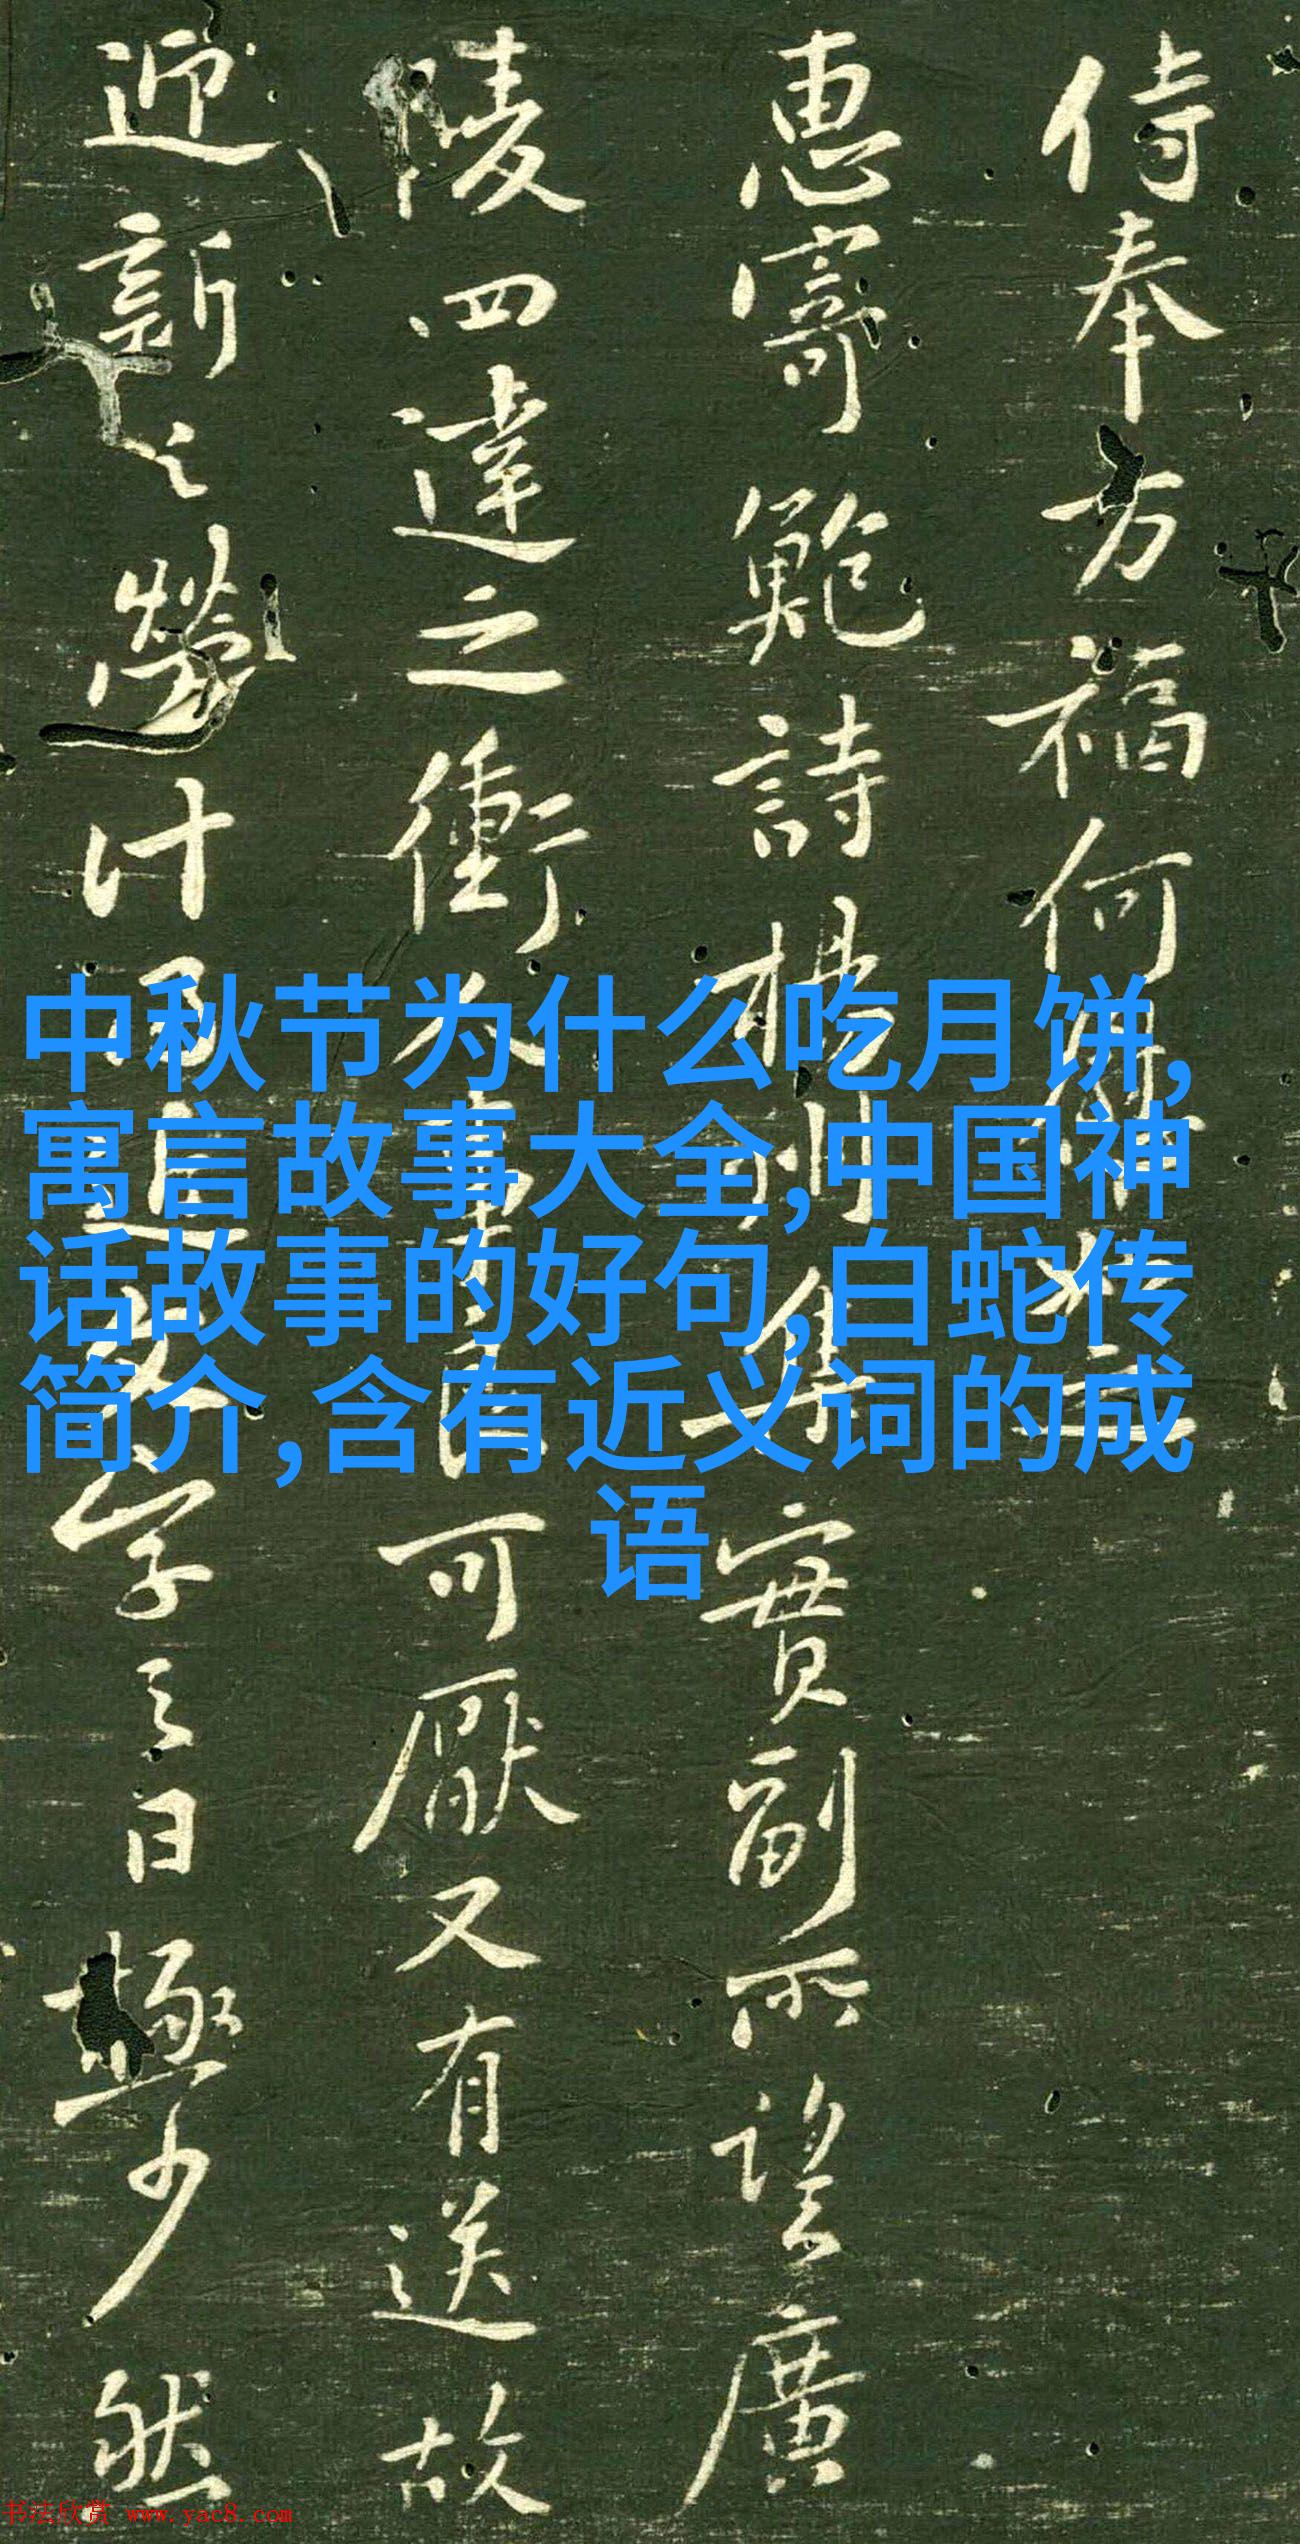 侍奉万福何
惠寄鮑詩楊州集實副所望廣
陵四達之衝人事良可厭又有送故
迎新之勞計文字之日極少然
中秋节为什么吃月饼,
寓言故事大全,中国神
话故事的好句,白蛇传
简介,含有近义词的成
语
书法欣赏 www.yac8.com